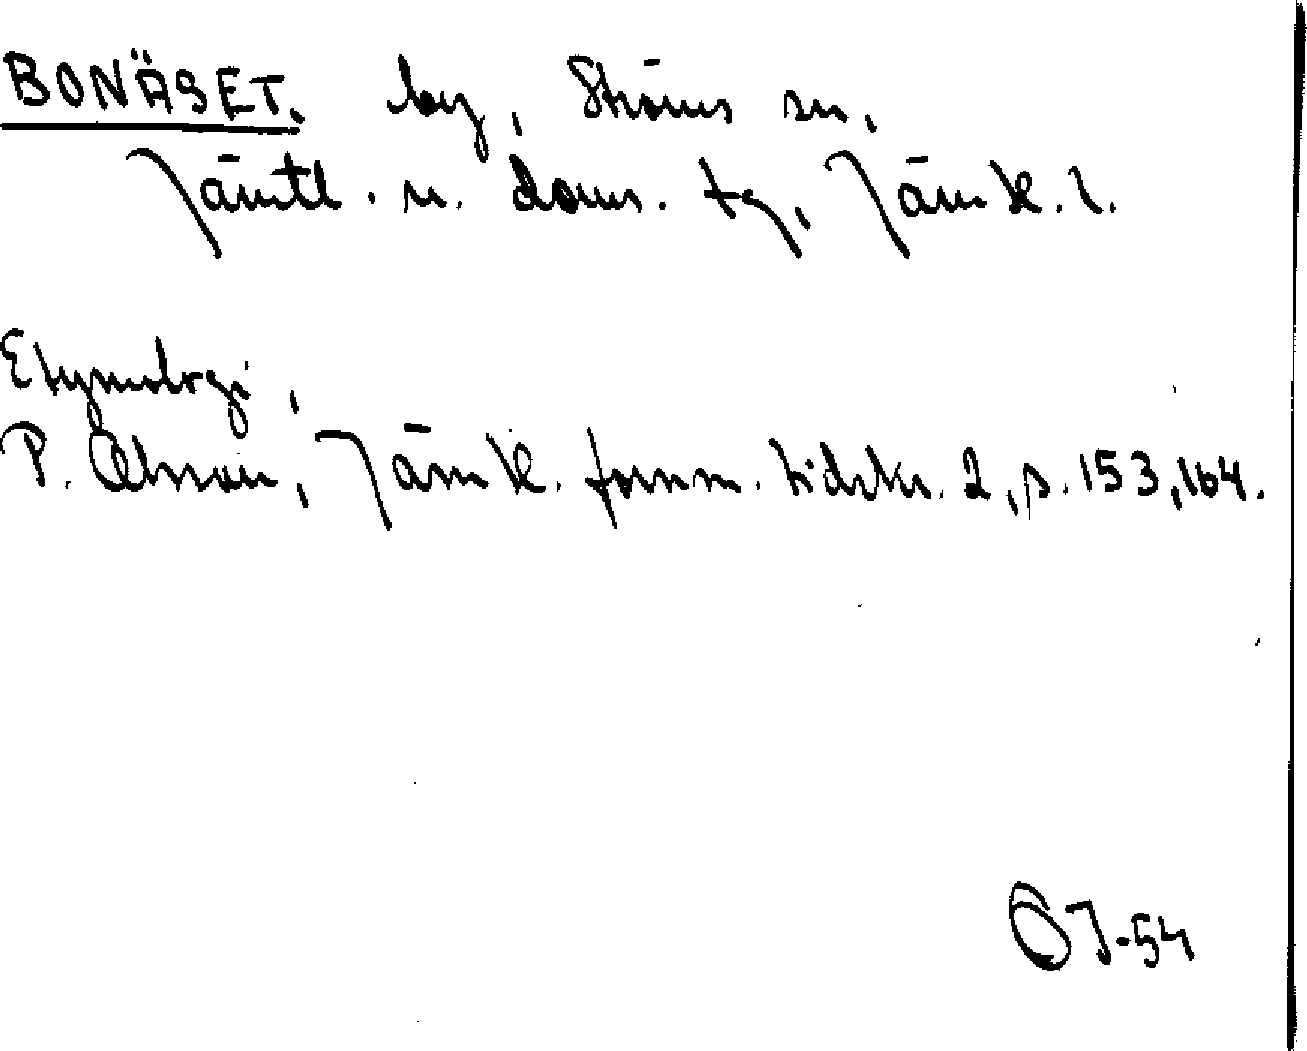 BONÄSET. by, Ströms sn,
Jämtl. n. doms. tg, Jämtl. l.
Etymologi,
P. Olsson, Jämtl. fornm. tidskr. 2, s. 153, 164.
ÖJ-54